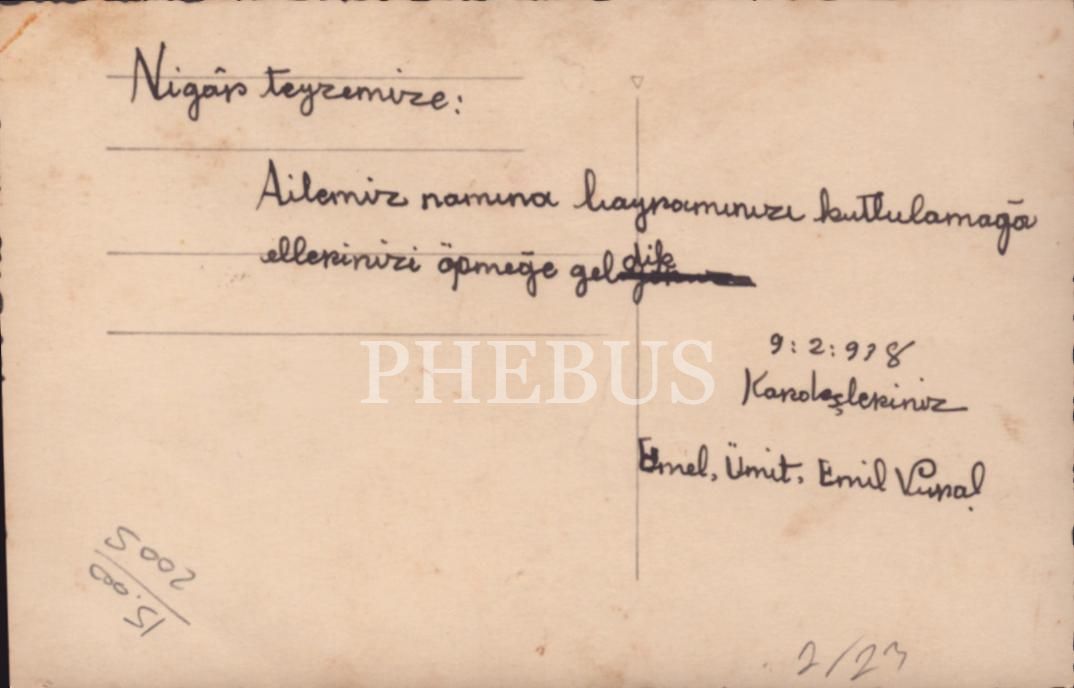 Nigâr teyzemize:
Ailemiz namına bayramınızı kutlulamağa
ellerinizi öpmeğe geldik
9:2:938
Kardeşleriniz
Emel, Ümit, Emil Vural
PHEBUS
15.000
2005
2/23